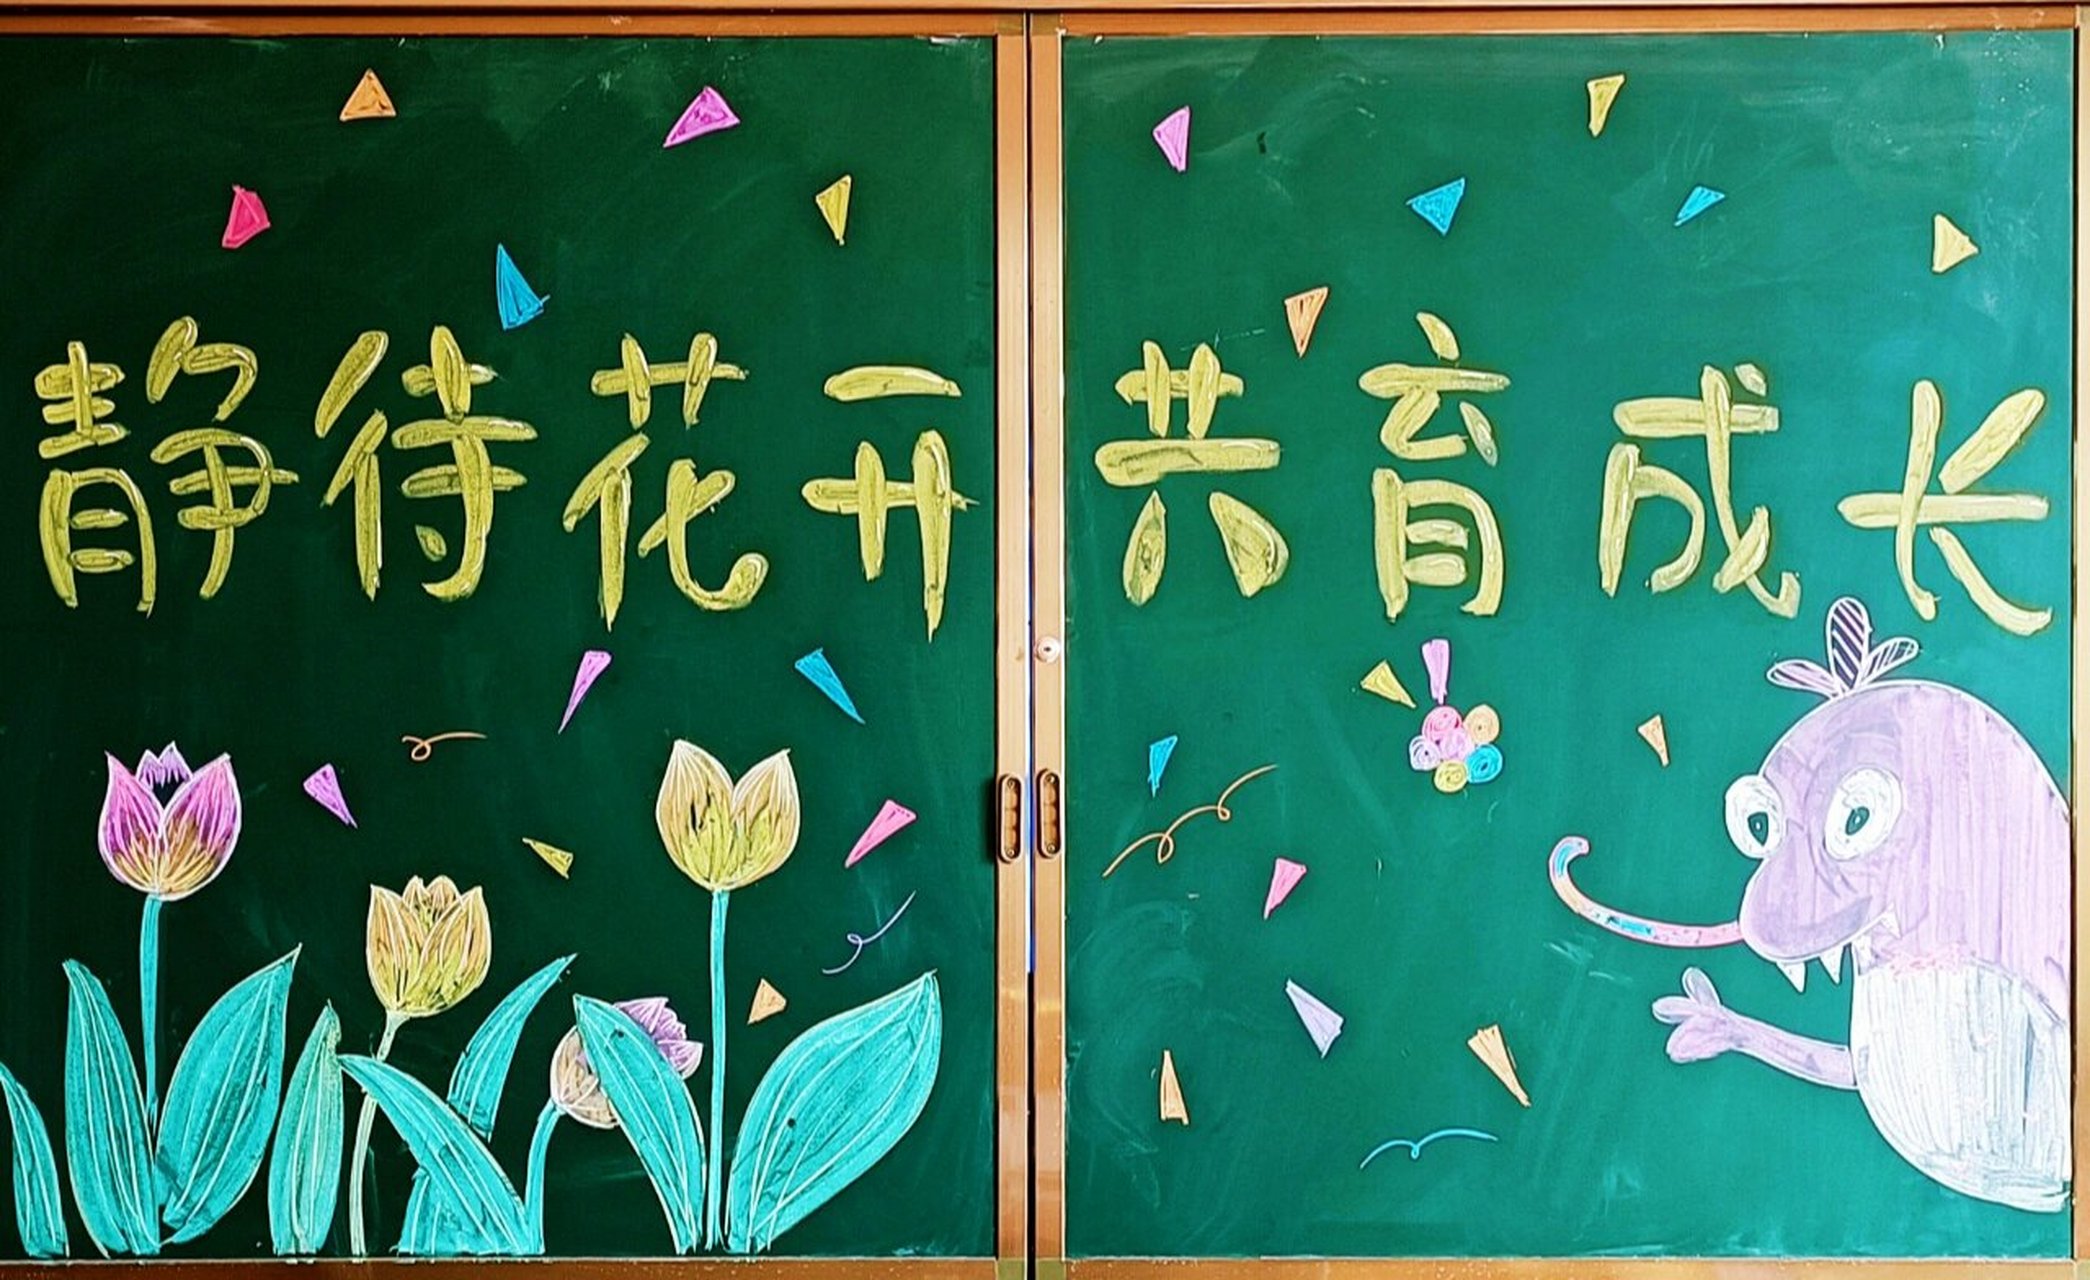 静待花开 共育成长